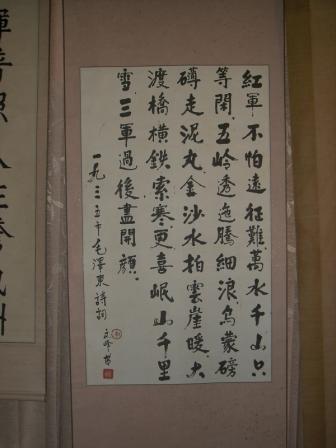 紅軍不怕遠征難萬水千山只
等閑五岭逶迤騰細浪烏蒙磅
礡走泥丸金沙水拍雲崖暖大
渡橋橫鉄索寒更喜岷山千里
雪三軍過後盡開顏
一九三五年毛澤東詩詞